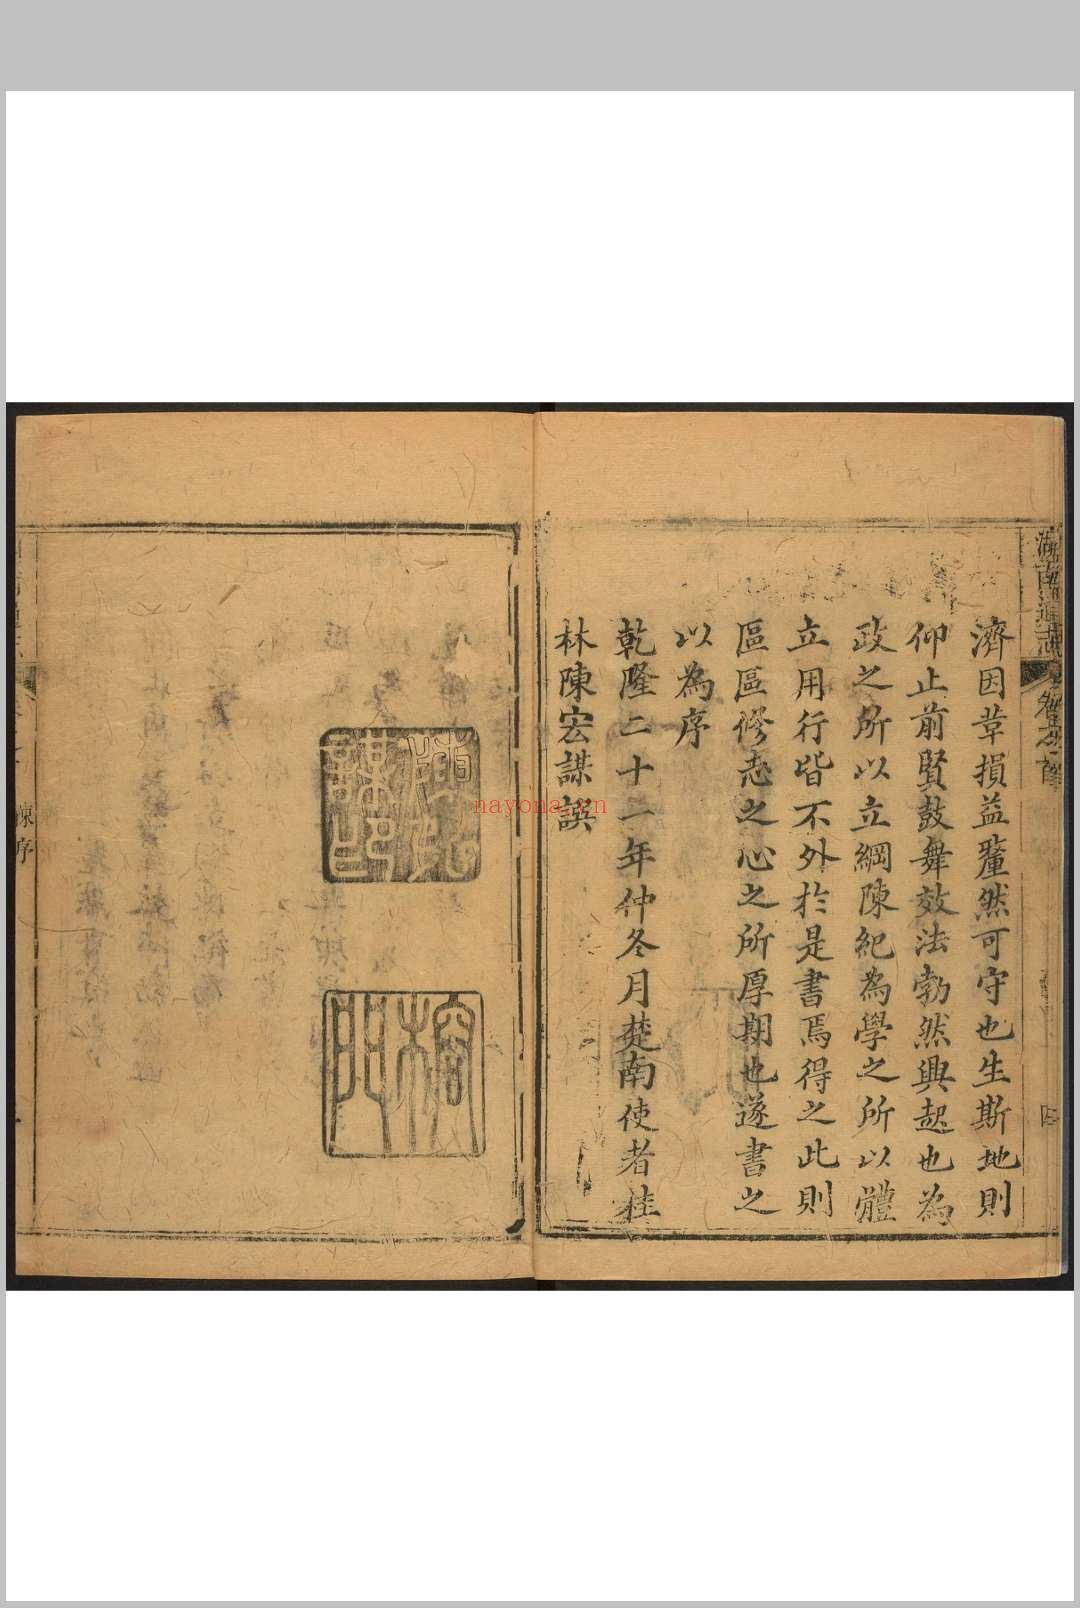 湖南通志 卷之首
濟因革損益釐然可守也生斯地則
仰止前賢鼓舞效法勃然興起也為
政之所以立綱陳紀為學之所以體
立用行皆不外於是書焉得之此則
區區修志之心之所厚期也遂書之
以為序
乾隆二十一年仲冬月楚南使者桂
林陳宏謀譔
榕門
陳序
nayona.cn